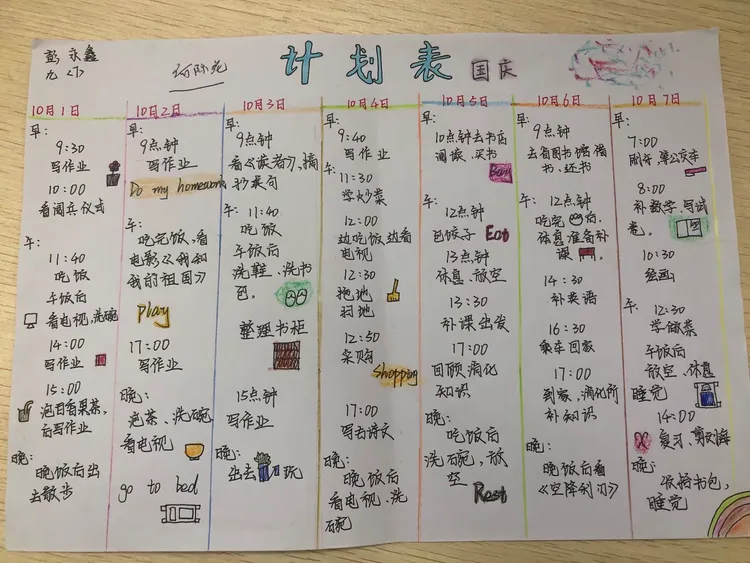 彭永鑫
九〈7〉
计划表
国庆
10月1日
早:
9:30
写作业
10:00
看阅兵仪式
午:
11:40
吃饭
午饭后
看电视,洗碗
14:00
写作业
15:00
泡百香果茶,
后写作业
晚:
晚饭后出
去散步
10月2日
早:
9点钟
写作业
Do my homework
午:
吃完饭,看
电影《我和
我的祖国》
Play
17:00
写作业
晚:
泡茶、洗碗
看电视
go to bed
10月3日
早:
9点钟
看《读者》,摘
抄美句
午:11:40
吃饭
午饭后
洗鞋、洗书
包。
整理书柜
15点钟
写作业
晚:
出去玩
10月4日
早:
9:40
写作业
午:
11:30
学炒菜
12:00
边吃饭边看
电视
12:30
拖地
扫地
12:50
采购
Shopping
17:00
写去诗文
晚:
晚饭后
看电视、洗
碗
10月5日
早:
10点钟去书店
阅读、买书
Buy
午:
12点钟
包饺子 Eat
13点钟
休息、放空
13:30
补课出发
17:00
回顾消化
知识
晚:
吃饭后
洗碗,放
空
Rest
10月6日
早:
9点钟
去看图书馆借
书、还书
午:12点钟
吃完后
休息准备补
课
14:30
补英语
16:30
乘车回家
17:00
到家,消化所
补知识
晚:
晚饭后看
《空降利刃》
10月7日
早:
7:00
刷牙 坐公交车
8:00
补数学,写试
卷。
10:30
绘画
午:12:30
学做菜
午饭后
放空、休息
睡觉
14:00
复习、
晚:
收拾书包,
睡觉